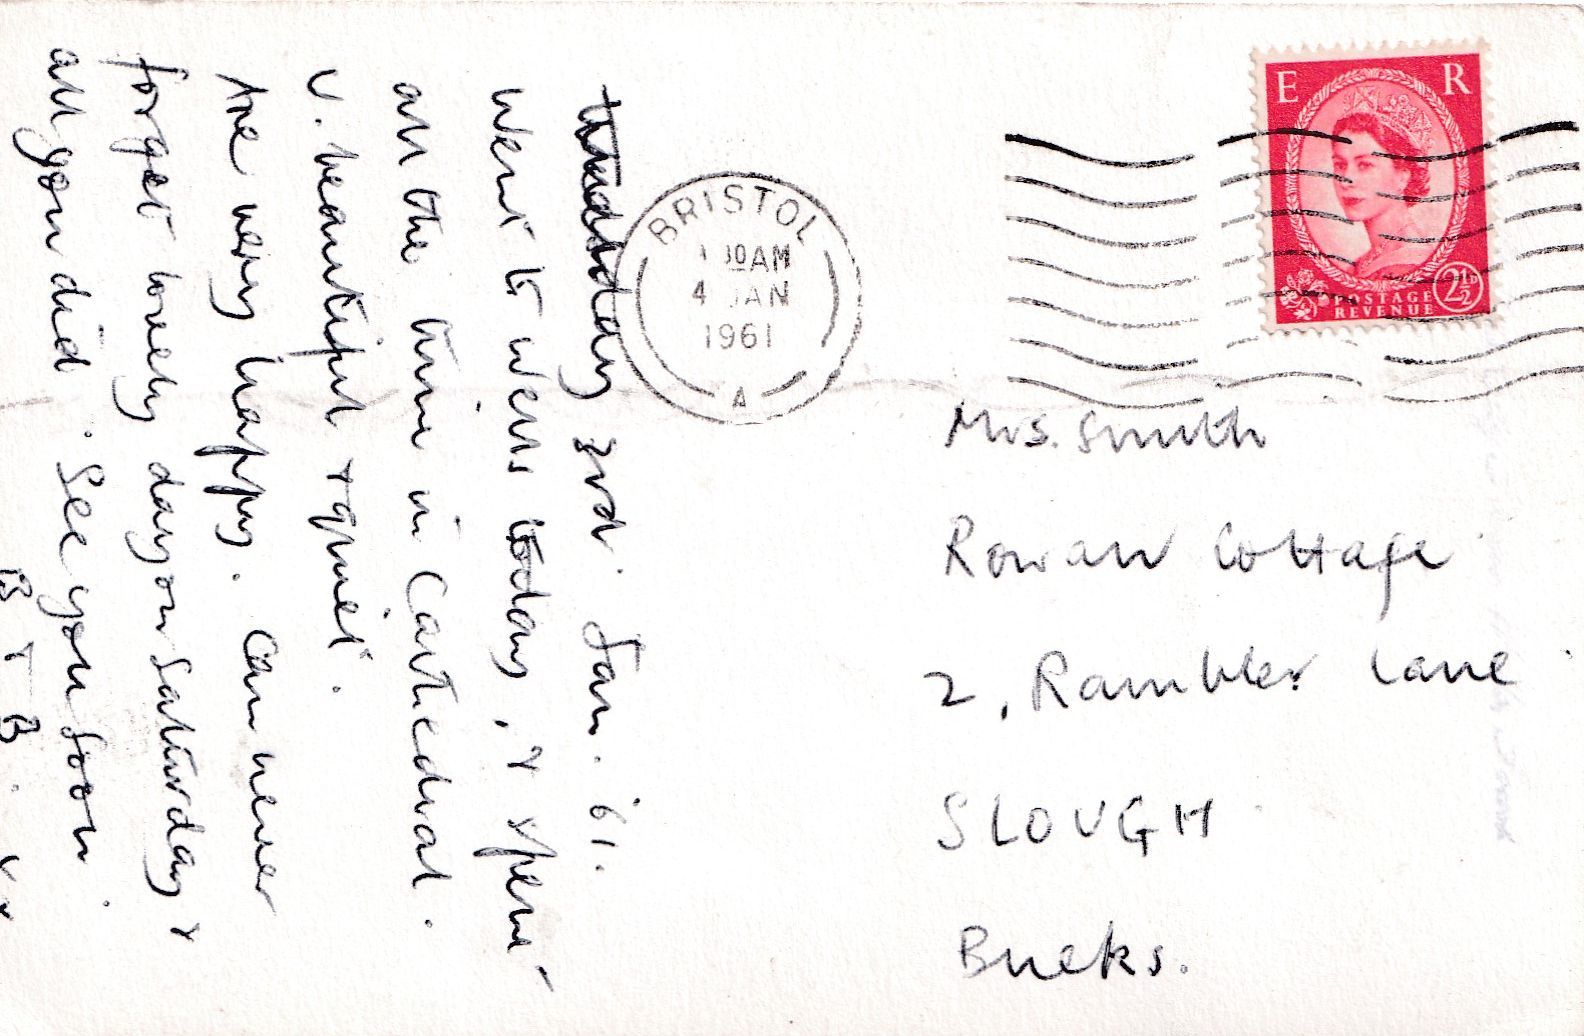 3rd. Jan. '61.
Went to Wells today, & spent
all the time in Cathedral.
V. beautiful & quiet.
Are very happy. Can never
forget lovely day on Saturday &
all you did. See you soon.
B & B. xx
BRISTOL
30AM
4 JAN
1961
A
E R
POSTAGE
REVENUE
2½D
Mrs. Smith
Rowan Cottage
2, Rambler Lane
SLOUGH
Bucks.